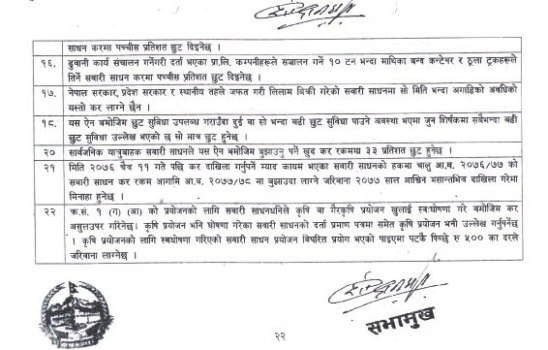 साधन करमा पच्चीस प्रतिशत छुट दिइनेछ ।
१६. ढुवानी कार्य संचालन गर्नेगरी दर्ता भएका प्रा.लि. कम्पनीहरुले सञ्चालन गर्ने १० टन भन्दा माथिका बन्द कन्टेनर र ठूला ट्रकहरुले
तिर्ने सवारी साधन करमा पच्चीस प्रतिशत छुट दिइनेछ ।
१७. नेपाल सरकार, प्रदेश सरकार र स्थानीय तहले जफत गरी लिलाम बिक्री गरेको सवारी साधनमा सो मिति भन्दा अगाडिको अवधिको
यस्तो कर लाग्ने छैन ।
१८. यस ऐन बमोजिम छुट सुविधा उपलब्ध गराउँदा दुई वा सो भन्दा बढी छुट सुविधा पाउने अवस्था भएमा जुन शिर्षकमा सबैभन्दा बढी
छुट सुविधा उल्लेख भएको छ सो मात्र छुट हुनेछ ।
२० सार्वजनिक यात्रुबाहक सवारी साधनले यस ऐन बमोजिम बुझाउनु पर्ने खुद कर रकममा ३३ प्रतिशत छुट हुनेछ ।
२१ मिति २०७६ चैत्र ११ गते पछि कर दाखिला गर्नुपर्ने म्याद कायम भएका सवारी साधनको हकमा चालु आ.व. २०७६/७७ को
सवारी साधन कर रकम आगामि आ.व. २०७७/७८ मा बुझाउदा लाग्ने जरिवाना २०७७ साल आश्विन मसान्तभित्र दाखिला गरेमा
मिनाहा हुनेछ ।
२२ क्र.सं. १ (ग) (आ) को प्रयोजनको लागि सवारी साधनधनिले कृषि वा गैरकृषि प्रयोजन खुलाई स्वःघोषणा गरे बमोजिम कर
असुलउपर गरिनेछ। कृषि प्रयोजन भनि घोषणा गरेका सवारी साधनको दर्ता प्रमाण पत्रमा समेत कृषि प्रयोजन भनी उल्लेख गर्नुपर्नेछ
। कृषि प्रयोजनको लागि स्वघोषणा गरिएको सवारी साधन प्रयोजन विपरित प्रयोग भएको पाइएमा पटकै पिच्छे रु ५०० का दरले
जरिवाना लाग्नेछ ।
२२
सभामुख